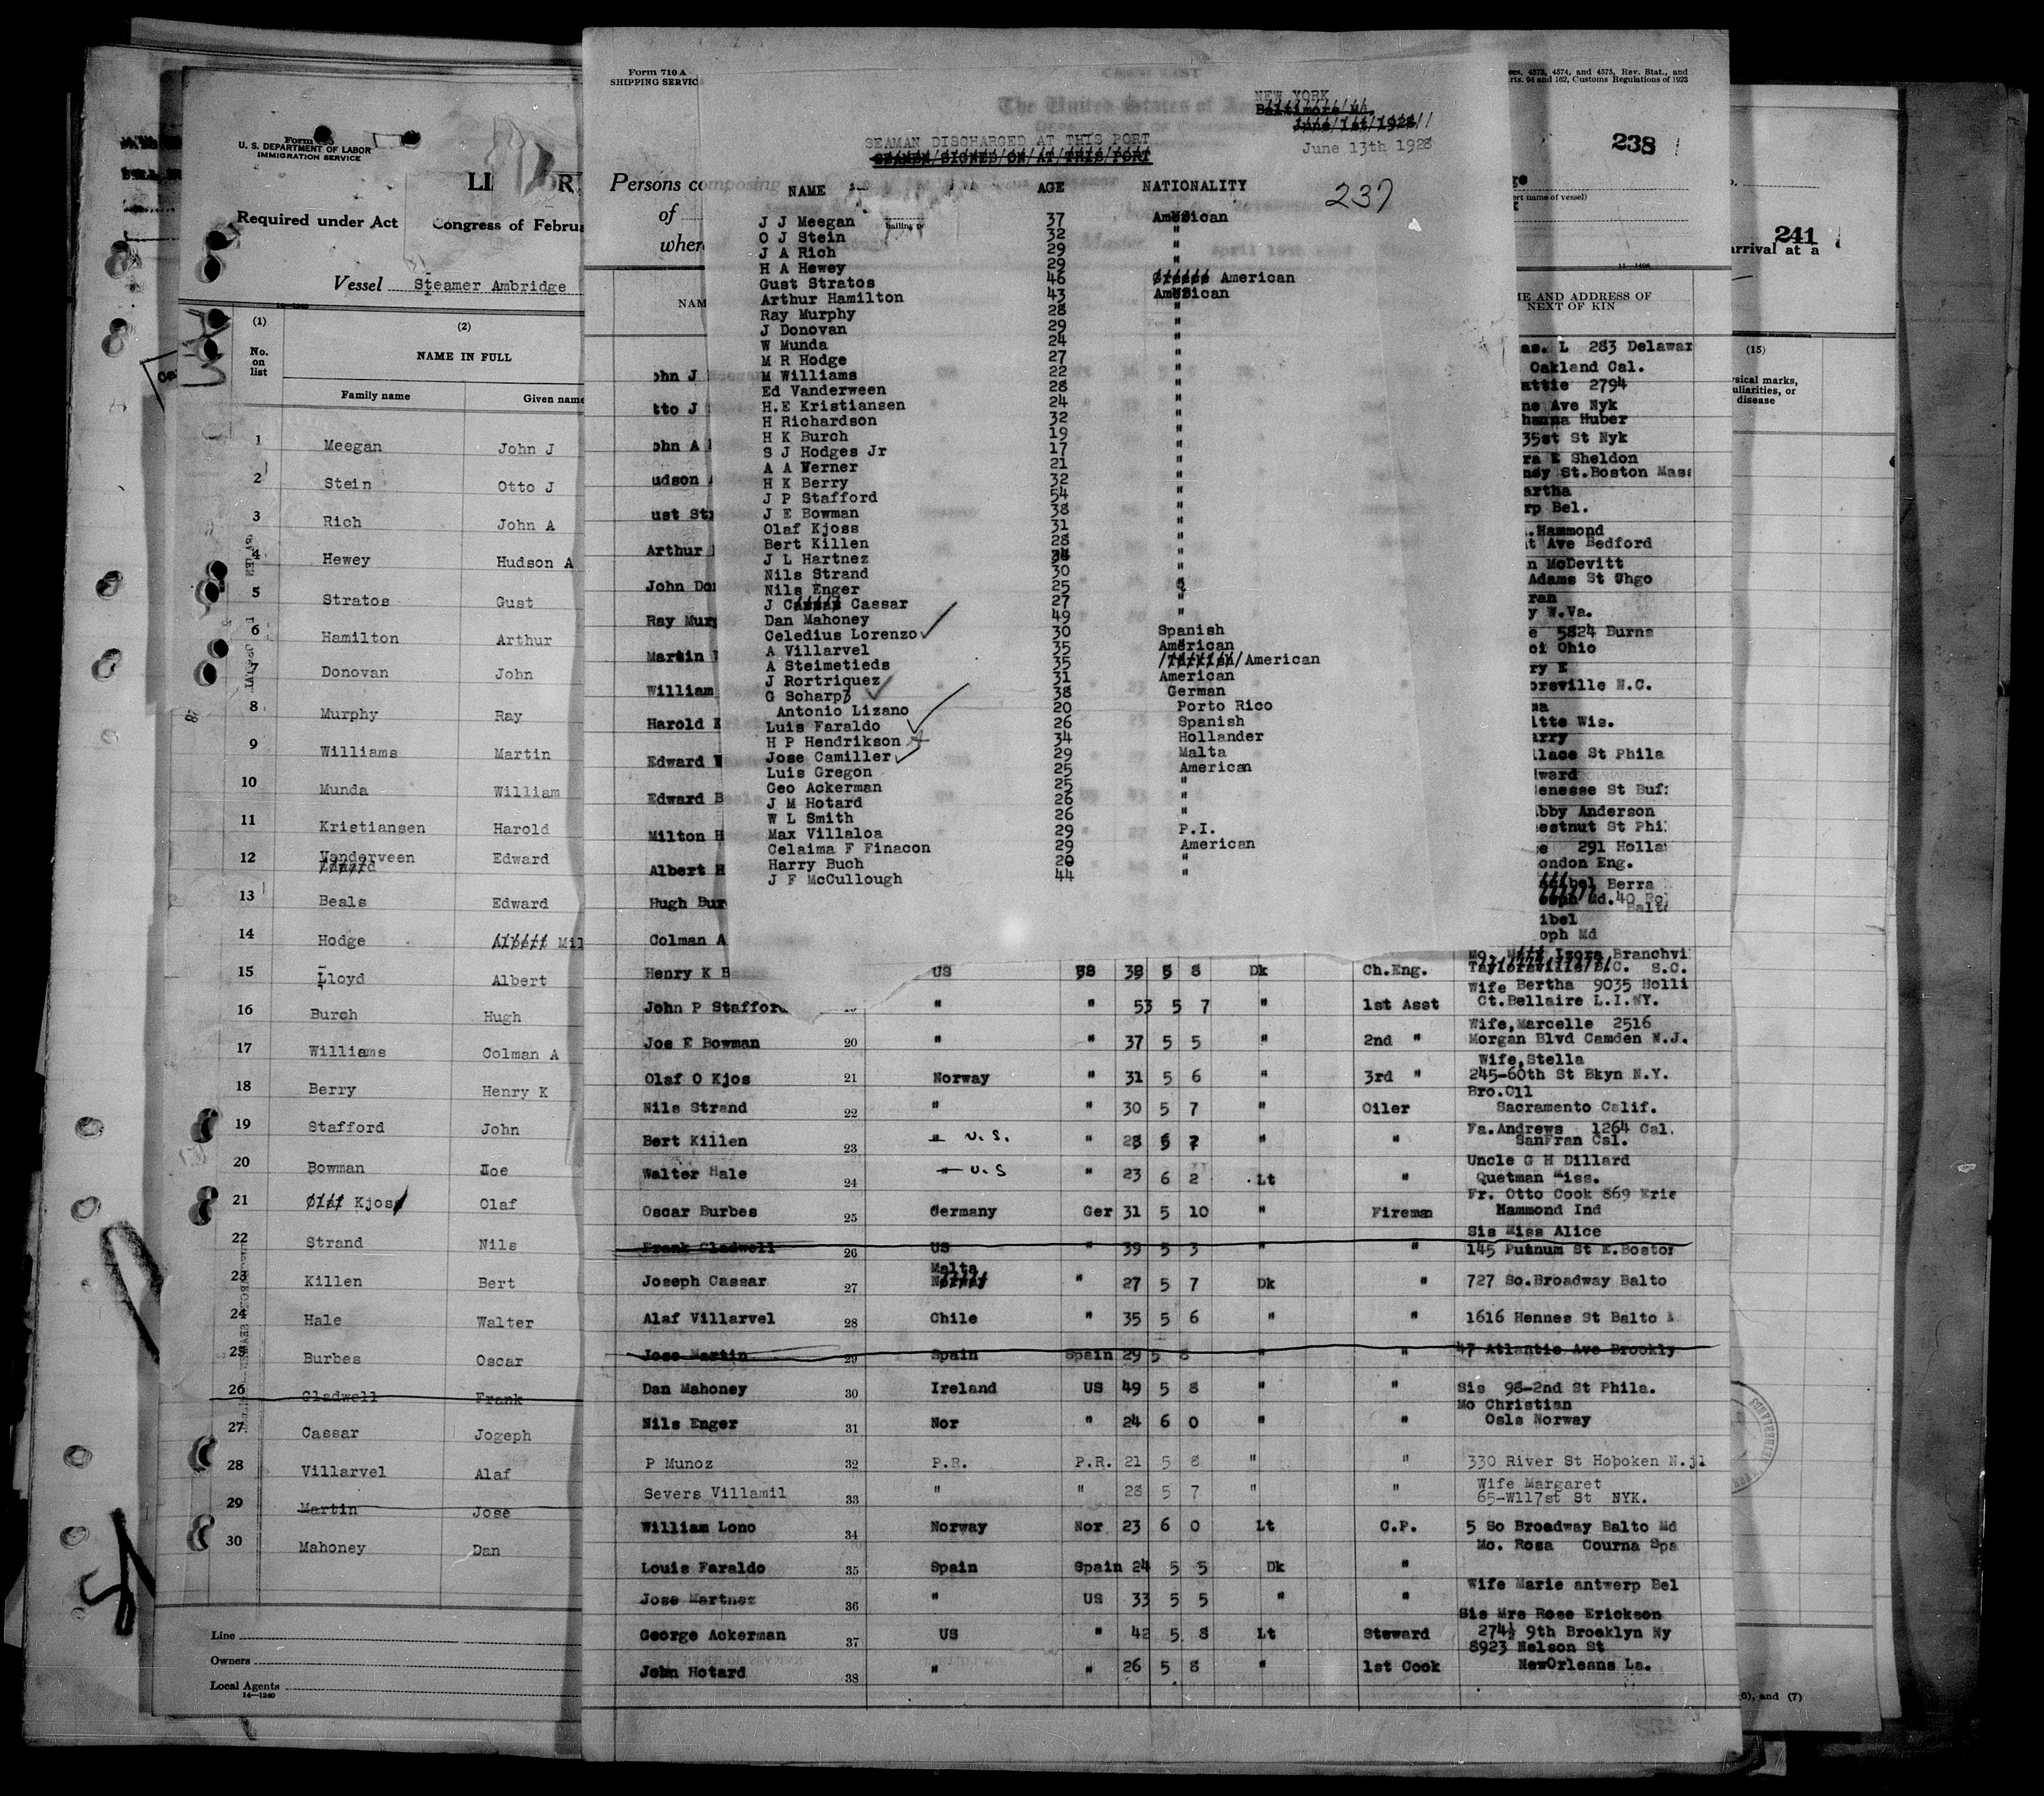 Form
U. S. DEPARTMENT OF LABOR
IMMIGRATION SERVICE
Required under Act
Congress of Februa
Vessel Steamer Ambridge
(1) (2)
No. on list
NAME IN FULL
Family name Given name
1 Meegan John J
2 Stein Otto J
3 Rich John A
4 Hewey Hudson A
5 Stratos Gust
6 Hamilton Arthur
7 Donovan John
8 Murphy Ray
9 Williams Martin
10 Munda William
11 Kristiansen Harold
12 Vanderveen Edward
13 Beals Edward
14 Hodge Albert Mil
15 Lloyd Albert
16 Burch Hugh
17 Williams Colman A
18 Berry Henry K
19 Stafford John
20 Bowman Joe
21 Olaf Kjoss Olaf
22 Strand Nils
23 Killen Bert
24 Hale Walter
25 Burbes Oscar
26 Gladwell Frank
27 Cassar Jogeph
28 Villarvel Alaf
29 Martin Jose
30 Mahoney Dan
Line
Owners
Local Agents
14—1240
Form 710 A
SHIPPING SERVIC
Persons co
of
wher
NAM
NEW YORK
Baltimore Md.
June/1st/1928
SEAMAN DISCHARGED AT THIS PORT
SEAMEN/SIGNED/ON/AT/THIS/PORT
June 13th 1928
NAME AGE NATIONALITY
237
J J Meegan 37 American
O J Stein 32 "
J A Rich 29 "
H A Hewey 29 "
Gust Stratos 46 Greece American
Arthur Hamilton 43 American
Ray Murphy 28 "
J Donovan 29 "
W Munda 24 "
M R Hodge 27 "
M Williams 22 "
Ed Vanderween 28 "
H.E Kristiansen 24 "
H Richardson 32 "
H K Burch 19 "
S J Hodges Jr 17 "
A A Verner 21 "
H K Berry 32 "
J P Stafford 54 "
J E Bowman 38 "
Olaf Kjoss 31 "
Bert Killen 28 "
J L Hartnez "
Nils Strand 30 "
Nils Enger 25 "
J Cassar Cassar 27 "
Dan Mahoney 49 "
Celedius Lorenzo 30 Spanish
A Villarvel 35 American
A Steimetieds 35 /Turkish/American
J Rortriquez 31 American
G Scharpz 38 German
Antonio Lizano 20 Porto Rico
Luis Faraldo 26 Spanish
H P Hendrikson 34 Hollander
Jose Camiller 29 Malta
Luis Gregon 25 American
Geo Ackerman 25 "
J M Hotard 26 "
W L Smith 26 "
Max Villaloa 29 P.I.
Celaima F Finacon 29 American
Harry Buch 20 "
J F McCullough 44 "
ohn J
tto J
ohn A
udson
ust St
Arthur
John Do
Ray Mur
Martin
William
Harold
Edward
Edward B
Milton H
Albert H
Hugh Bur
Colman A
Henry K B US 38 5 8 Dk Ch.Eng.
John P Stafford " " 53 5 7 " 1st Asst
Joe E Bowman 20 " " 37 5 5 " 2nd "
Olaf O Kjos 21 Norway " 31 5 6 " 3rd "
Nils Strand 22 " " 30 5 7 " Oiler
Bert Killen 23 " U.S. " 28 5 7 " "
Walter Hale 24 " U.S " 23 6 2 Lt "
Oscar Burbes 25 Germany Ger 31 5 10 " Fireman
Frank Gladwell 26 US " 39 5 3 " "
Joseph Cassar 27 Malta Norway " 27 5 7 Dk "
Alaf Villarvel 28 Chile " 35 5 6 " "
Jose Martin 29 Spain Spain 29 5 8 " "
Dan Mahoney 30 Ireland US 49 5 8 " "
Nils Enger 31 Nor " 24 6 0 " "
P Munoz 32 P.R. P.R. 21 5 8 " "
Severs Villamil 33 " " 28 5 7 " "
William Lono 34 Norway Nor 23 6 0 Lt C.P.
Louis Faraldo 35 Spain Spain 24 5 5 Dk "
Jose Martnez 36 " US 33 5 5 " "
George Ackerman 37 US " 42 5 8 Lt Steward
John Hotard 38 " " 26 5 8 " 1st Cook
ecs. 4573, 4574, and 4575, Rev. Stat., and
rts. 94 and 162, Customs Regulations of 1923
238
ert name of vessel)
11—1406
ME AND ADDRESS OF
NEXT OF KIN
as. L 283 Delawar
Oakland Cal.
attie 2794
ne Ave Nyk
hanna Huber
35st St Nyk
ra E Sheldon
ney St.Boston Mass
artha
rp Bel.
.Hammond
t Ave Bedford
n McDevitt
Adams St Chgo
ran
y W.Va.
e 5824 Burns
oi Ohio
ry E
orsville N.C.
ma
itte Wis.
arry
llace St Phila
dward
enesse St Buf
bby Anderson
estnut St Phi
e 291 Holla
ondon Eng.
Berra
Md. 40
Balto
ibel
oph Md
Mo. Izora Branchvi
Taylorsville S.C. S.C.
Wife Bertha 9035 Holli
Ct.Bellaire L.I.NY.
Wife,Marcelle 2516
Morgan Blvd Camden N.J.
Wife,Stella
245-60th St Bkyn N.Y.
Bro.Oll
Sacramento Calif.
Fa.Andrews 1264 Cal.
SanFran Cal.
Uncle G H Dillard
Quetman Miss.
Fr. Otto Cook 869 Erie
Hammond Ind
Sis Miss Alice
145 Putnum St E.Boston
727 So.Broadway Balto
1616 Hennes St Balto
47 Atlantic Ave Brookly
Sis 98-2nd St Phila.
Mo Christian
Osls Norway
330 River St Hoboken N.j
Wife Margaret
65-W117st St NYK.
5 So Broadway Balto Md
Mo. Rosa Courna Spa
Wife Marie antwerp Bel
Sis Mrs Rose Erickson
274½ 9th Brooklyn Ny
8923 Nelson St
NewOrleans La.
241
arrival at a
(15)
sical marks,
uliarities, or
disease
6), and (7)